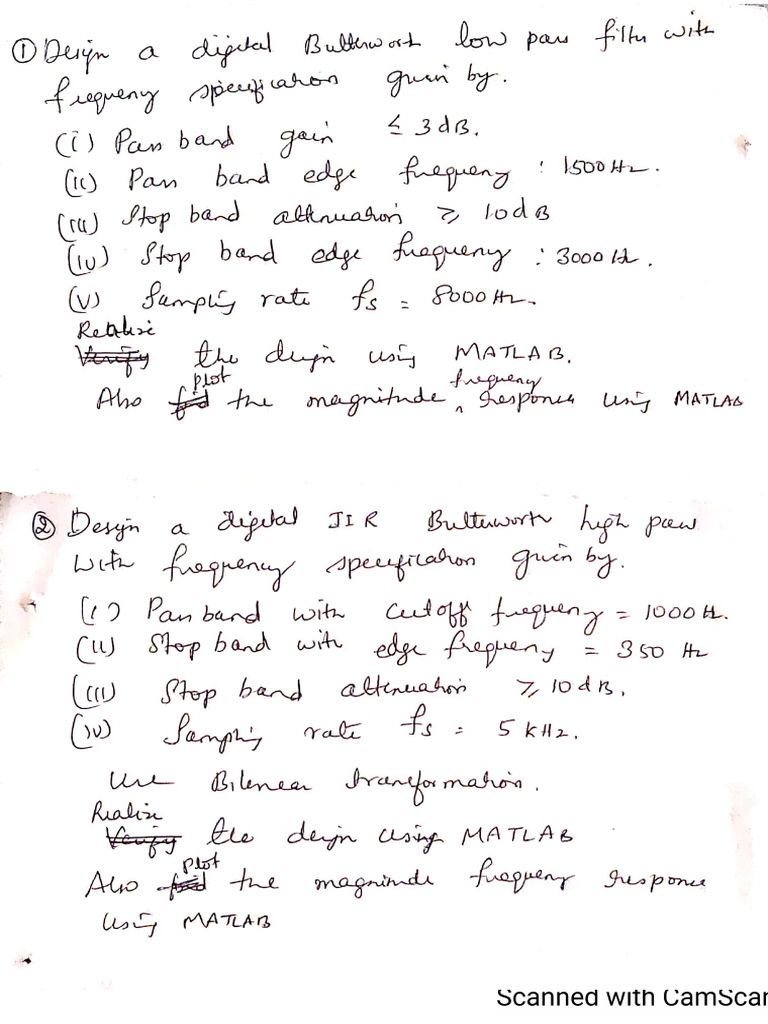 ① Design a digital Butterworth low pass filter with
frequency specification given by.
(i) Pass band gain ≤ 3dB.
(ii) Pass band edge frequency : 1500Hz.
(iii) Stop band attenuation ≥ 10dB
(iv) Stop band edge frequency : 3000Hz.
(v) Sampling rate fs = 8000Hz.
Realise
Verify the design using MATLAB.
plot frequency
Also find the magnitude ^ response using MATLAB
② Design a digital IIR Butterworth high pass
with frequency specification given by.
(i) Pass band with cutoff frequency = 1000Hz.
(ii) Stop band with edge frequency = 350 Hz
(iii) Stop band attenuation ≥ 10dB.
(iv) Sampling rate fs = 5 kHz.
use Bilinear transformation.
Realise
Verify the design using MATLAB
plot
Also find the magnitude frequency response
using MATLAB
Scanned with CamScan